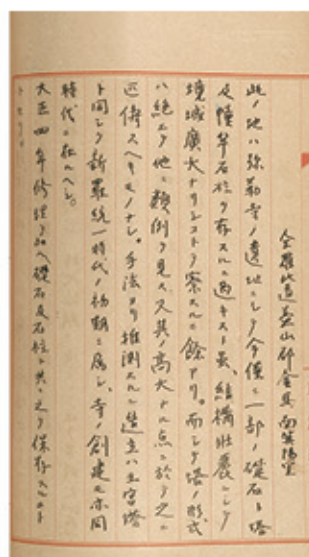 全羅北道益山郡金馬面箕陽里
此ノ地ハ弥勒寺ノ遺址ニシテ今僅ニ一部ノ礎石ト塔
及幢竿石柱ヲ存スルニ過キストモ、結構壮麗ニシテ
境域廣大ナリシコトヲ察スルニ餘アリ。而シテ塔ノ形式
ハ絶エテ他ニ類例ヲ見ス又其ノ高大ナル点ニ於テ之ニ
匹儔スヘキモノナシ。手法ヨリ推測スルニ造立ハ王宮塔
ト同シク新羅統一時代ノ初期ニ属シ、寺ノ創建モ亦同
時代ニ在ルヘシ。
大正四年修理ヲ加ヘ礎石及石柱ト共ニ之ヲ保存スルコト